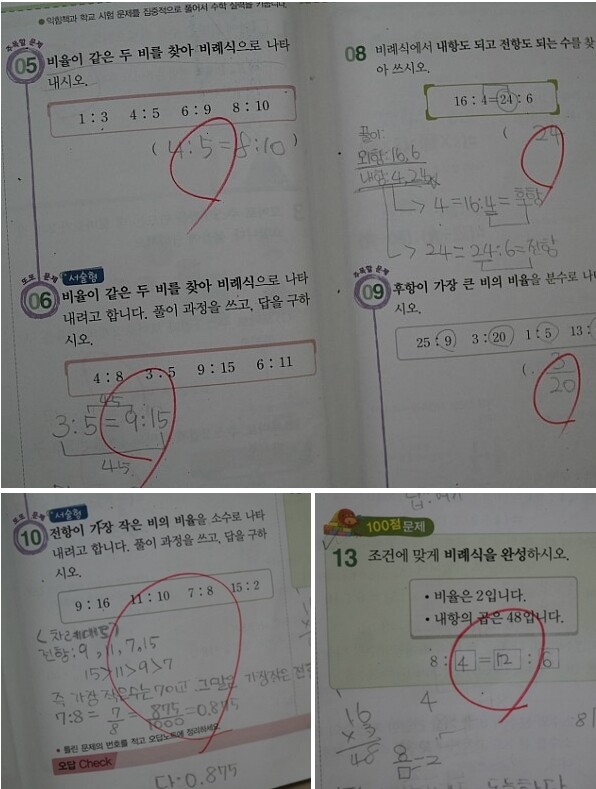 • 익힘책과 학교 시험 문제를 집중적으로 풀어서 수학 실력을 키웁니다.
주목할 문제
05 비율이 같은 두 비를 찾아 비례식으로 나타
내시오.
1 : 3 4 : 5 6 : 9 8 : 10
( 4:5=8:10 )
또또 문제
서술형
06 비율이 같은 두 비를 찾아 비례식으로 나타
내려고 합니다. 풀이 과정을 쓰고, 답을 구하
시오.
4 : 8 3 : 5 9 : 15 6 : 11
45
3:5=9:15
45
08 비례식에서 내항도 되고 전항도 되는 수를 찾
아 쓰시오.
16 : 4=24 : 6
( 24
풀이:
외항:16,6
내항:4,24
→ 4=16:4=후항
→ 24=24:6=전항
주목할 문제
09 후항이 가장 큰 비의 비율을 분수로 나
시오.
25 : 9 3 : 20 1 : 5 13 :
( 3
20
또또 문제
서술형
10 전항이 가장 작은 비의 비율을 소수로 나타
내려고 합니다. 풀이 과정을 쓰고, 답을 구하
시오.
9 : 16 11 : 10 7 : 8 15 : 2
(차례대로)
전항:9,11,7,15
15>11>9>7
즉 가장 작은수는 7이고 가장작은 전
7:8=7/8=875/1000=0.875
• 틀린 문제의 번호를 적고 오답노트에 정리하세요.
오답 Check
답:0.875
100점 문제
13 조건에 맞게 비례식을 완성하시오.
• 비율은 2입니다.
• 내항의 곱은 48입니다.
8 : 4 = 12 : 6
4
16
x 3
48
8/□=2